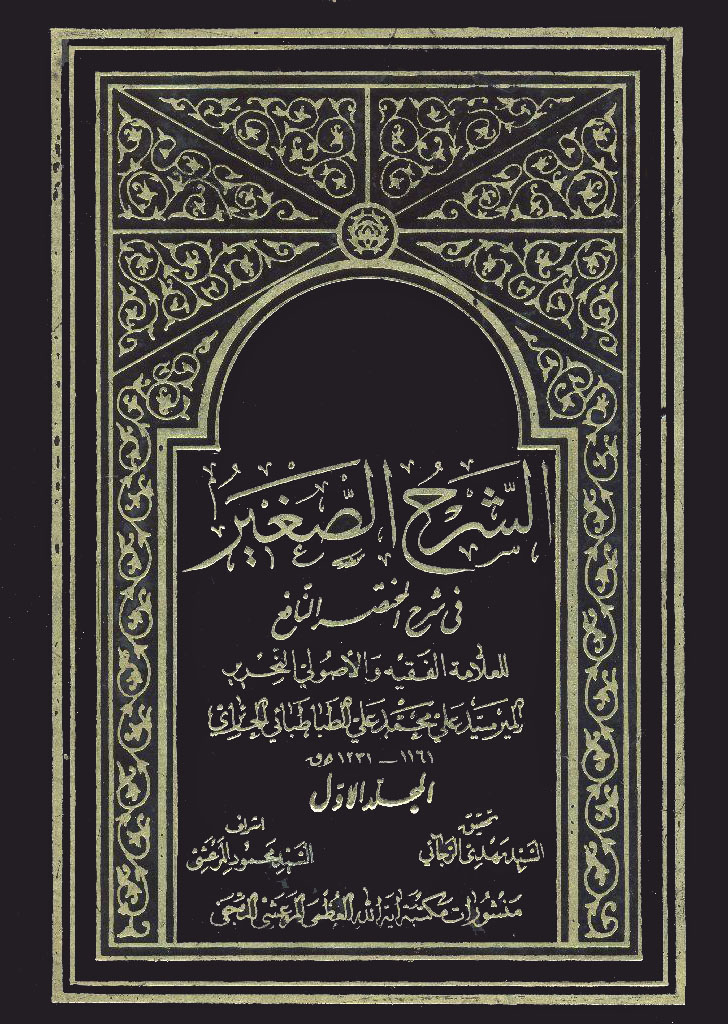 الشرح الصغير
في شرح المختصر النافع
للعلامة الفقيه والأصولي النحرير
المير سيد علي محمد علي الطباطبائي الحائري
١١٦١ - ١٢٣١ ه ق
المجلد الاول
تحقيق
السيد مهدي الرجائي
اشراف
السيد محمود المرعشي
منشورات مكتبة آية الله العظمى المرعشي النجفي